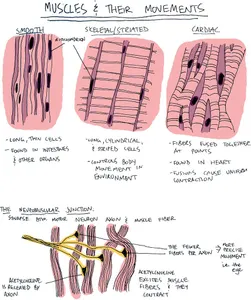 MUSCLES & THEIR MOVEMENTS
SMOOTH
SKELETAL/STRIATED
CARDIAC
- LONG, THIN CELLS
- FOUND IN INTESTINES
& OTHER ORGANS
- LONG, CYLINDRICAL,
& STRIPED CELLS
- CONTROLS BODY
MOVEMENT IN
ENVIRONMENT
- FIBERS FUSED TOGETHER
AT POINTS
- FOUND IN HEART
- FUSIONS CAUSE UNIFORM
CONTRACTION
THE NEUROMUSCULAR JUNCTION:
SYNAPSE BTW MOTOR NEURON AXON & MUSCLE FIBER
THE FEWER
FIBERS PER AXON
MORE
PRECISE
MOVEMENT
i.e. the
eye
ACETYLCHOLINE
IS RELEASED BY
AXON
ACETYLCHOLINE
EXCITES MUSCLE
FIBERS & THEY
CONTRACT